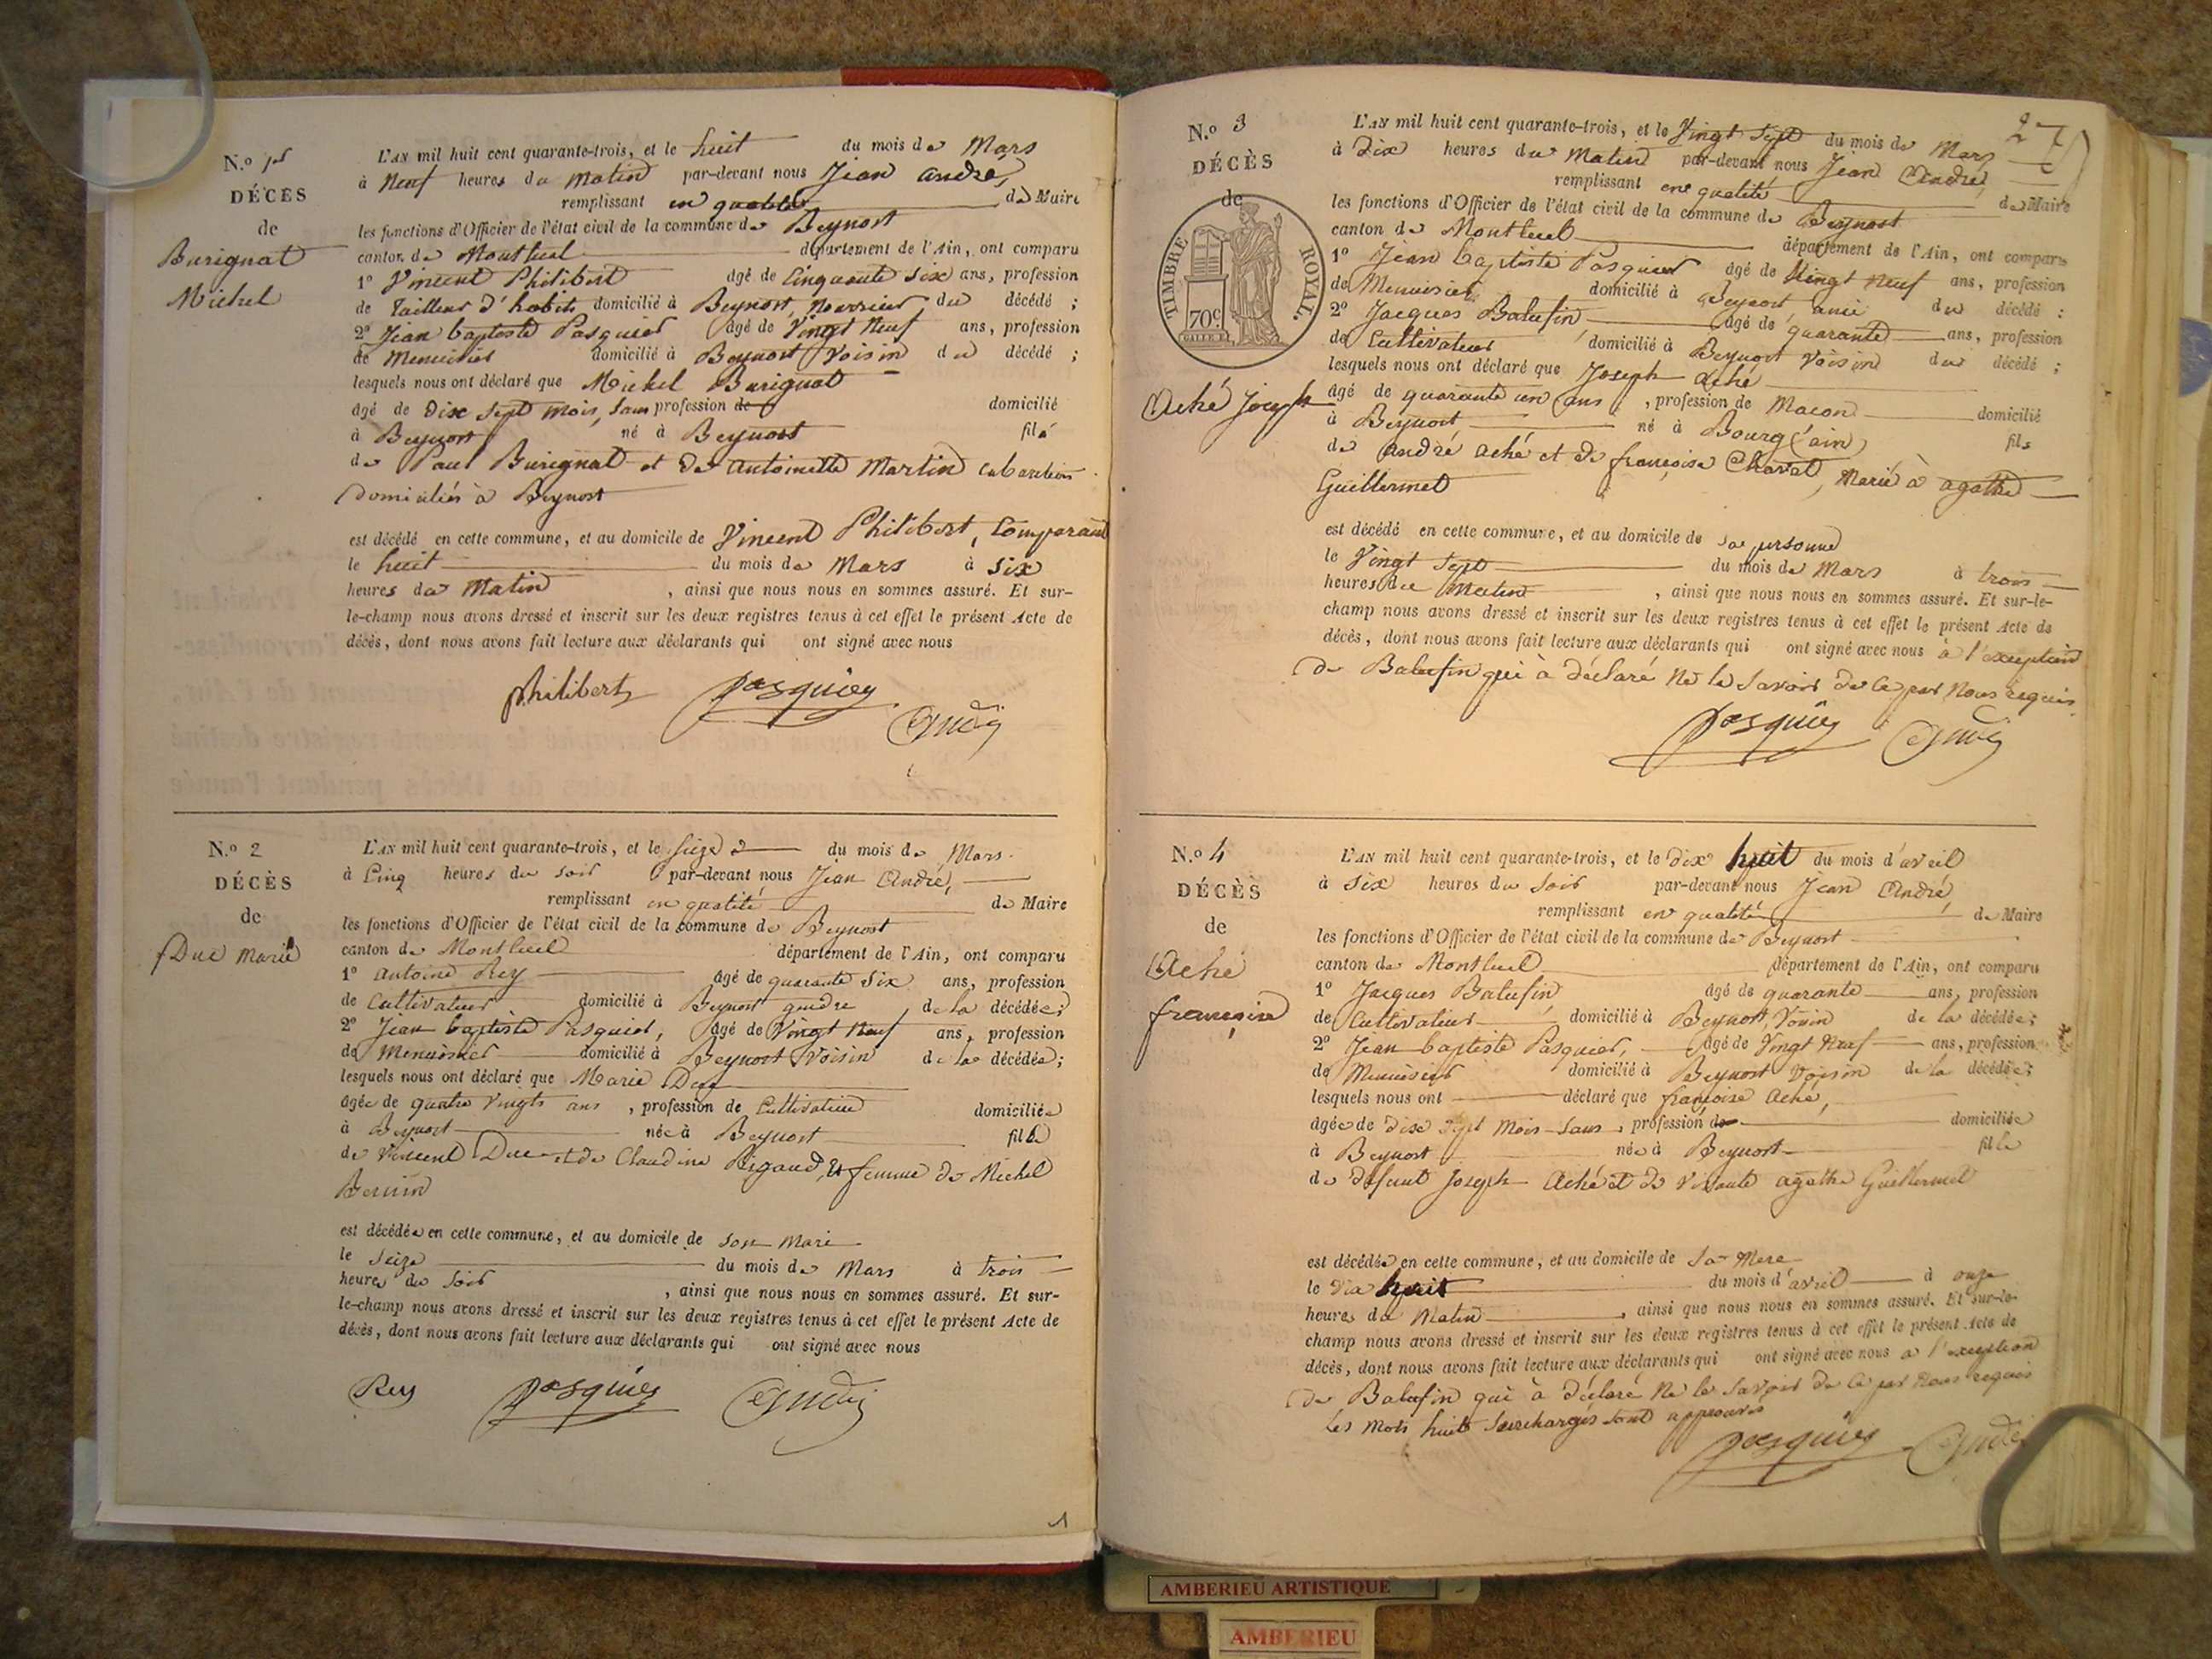 N.o 1er
DÉCÈS
de
Burignat
Michel
L'AN mil huit cent quarante-trois, et le huit du mois de Mars
à Neuf heures du Matin par-devant nous Jean André,
remplissant en qualité de Maire
les fonctions d'Officier de l'état civil de la commune de Beynost
canton de Montluel département de l'Ain, ont comparu
1o Vincent Philibert âgé de Cinquante Six ans, profession
de Tailleur d'habits domicilié à Beynost, Nourricier du décédé ;
2o Jean baptiste Pasquier âgé de Vingt Neuf ans, profession
de Menuisier domicilié à Beynost Voisin du décédé ;
lesquels nous ont déclaré que Michel Burignat
âgé de Dix Sept Mois, Sans profession de domicilié
à Beynost né à Beynost fils
de Paul Burignat et de Antoinette Martin
Domiciliés à Beynost
est décédé en cette commune, et au domicile de Vincent Philibert, Comparant
le huit du mois de Mars à Six
heures du Matin , ainsi que nous nous en sommes assuré. Et sur-
le-champ nous avons dressé et inscrit sur les deux registres tenus à cet effet le présent Acte de
décès, dont nous avons fait lecture aux déclarants qui ont signé avec nous
philibert pasquier André
N.o 2
DÉCÈS
de
Duc Marie
L'AN mil huit cent quarante-trois, et le Seize du mois de Mars
à Cinq heures du Soir par-devant nous Jean André,
remplissant en qualité de Maire
les fonctions d'Officier de l'état civil de la commune de Beynost
canton de Montluel département de l'Ain, ont comparu
1o Antoine Rey âgé de quarante Six ans, profession
de Cultivateur domicilié à Beynost gendre de la décédée ;
2o Jean baptiste Pasquier, âgé de Vingt Neuf ans, profession
de Menuisier domicilié à Beynost Voisin de la décédée ;
lesquels nous ont déclaré que Marie Duc
âgée de quatre Vingts ans , profession de Cultivatrice domiciliée
à Beynost née à Beynost fille
de Vincent Duc et de Claudine Rigaud, et femme de Michel
est décédée en cette commune, et au domicile de Son Mari
le Seize du mois de Mars à Trois
heures du Soir , ainsi que nous nous en sommes assuré. Et sur-
le-champ nous avons dressé et inscrit sur les deux registres tenus à cet effet le présent Acte de
décès, dont nous avons fait lecture aux déclarants qui ont signé avec nous
Rey pasquier André
1
27
N.o 3
DÉCÈS
de
TIMBRE ROYAL.
70c
Aché Joseph
L'AN mil huit cent quarante-trois, et le Vingt Sept du mois de Mars
à Dix heures du Matin par-devant nous Jean André,
remplissant en qualité de Maire
les fonctions d'Officier de l'état civil de la commune de Beynost
canton de Montluel département de l'Ain, ont comparu
1o Jean baptiste Pasquier âgé de Vingt Neuf ans, profession
de Menuisier domicilié à Beynost, ami du décédé :
2o Jacques Balufin âgé de quarante ans, profession
de Cultivateur domicilié à Beynost Voisin du décédé ;
lesquels nous ont déclaré que Joseph Aché
âgé de quarante un ans , profession de Macon domicilié
à Beynost né à Bourg (ain) fils
de André Aché et de françoise Charvat, Marié à agathe
Guillermet
est décédé en cette commune, et au domicile de Sa personne
le Vingt Sept du mois de Mars à trois
heures du Matin , ainsi que nous nous en sommes assuré. Et sur-le-
champ nous avons dressé et inscrit sur les deux registres tenus à cet effet le présent Acte de
décès, dont nous avons fait lecture aux déclarants qui ont signé avec nous à l'exception
de Balufin qui à déclaré Ne le Savoir de ce par Nous requis
pasquier André
N.o 4
DÉCÈS
de
Aché
françoise
L'AN mil huit cent quarante-trois, et le Dix huit du mois d'avril
à Six heures du Soir par-devant nous Jean André,
remplissant en qualité de Maire
les fonctions d'Officier de l'état civil de la commune de Beynost
canton de Montluel département de l'Ain, ont comparu
1o Jacques Balufin, âgé de quarante ans, profession
de Cultivateur domicilié à Beynost, Voisin de la décédée ;
2o Jean baptiste Pasquier, âgé de Vingt Neuf ans, profession
de Menuisier domicilié à Beynost Voisin de la décédée ;
lesquels nous ont déclaré que françoise Aché,
âgée de Dix Sept Mois Sans , profession de domiciliée
à Beynost née à Beynost fille
de Défunt Joseph Aché et de Vivante agathe Guillermet
est décédée en cette commune, et au domicile de Sa Mere
le Dix huit du mois d'avril à onze
heures du Matin , ainsi que nous nous en sommes assuré. Et sur-le-
champ nous avons dressé et inscrit sur les deux registres tenus à cet effet le présent Acte de
décès, dont nous avons fait lecture aux déclarants qui ont signé avec nous a l'exception
de Balufin qui à déclaré Ne le Savoir de ce par Nous requis
Les Mots huit Surchargés Sont approuvés
pasquier André
AMBERIEU ARTISTIQUE
AMBERIEU